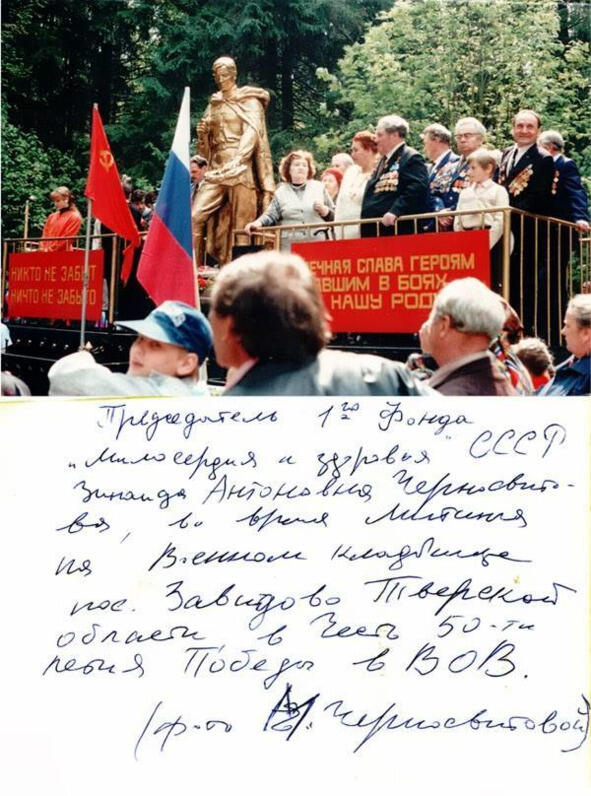 НИКТО НЕ ЗАБЫТ
НИЧТО НЕ ЗАБЫТО
ЕЧНАЯ СЛАВА ГЕРОЯМ
АВШИМ В БОЯХ
НАШУ РОДИ
Председатель 1го Фонда
"Милосердия и здоровья" СССР
Зинаида Антоновна Черносвито-
ва, во время митинга
на Военном кладбище
пос. Завидово Тверской
области, в честь 50-ти
летия Победы в ВОВ.
(фото Черносвитовой)